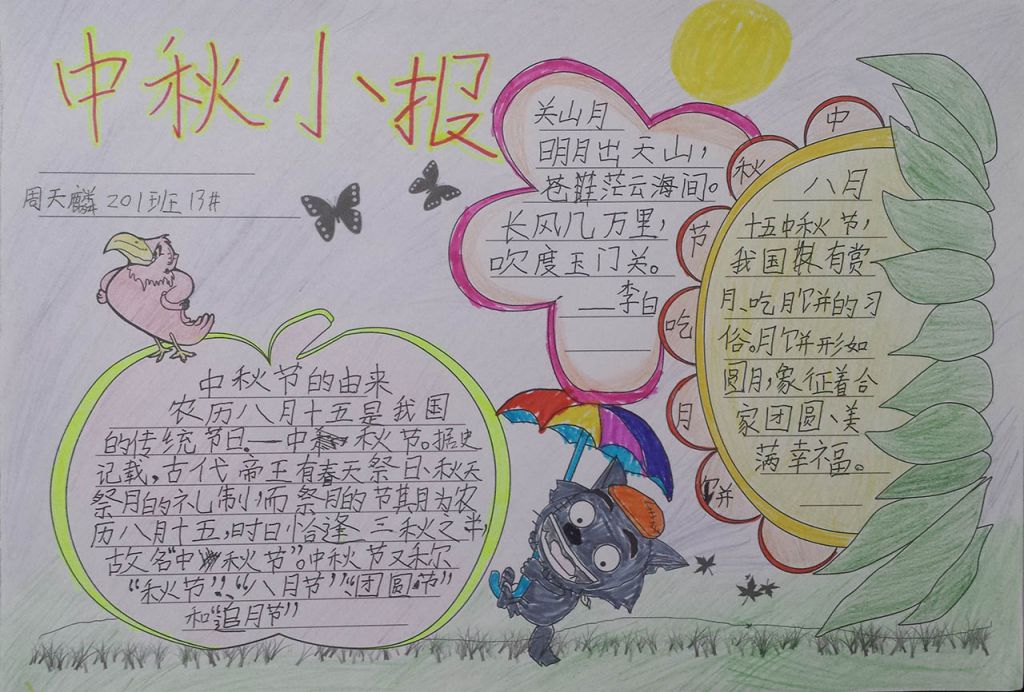 中秋小报
周天麟 201班 13#
中秋节的由来
农历八月十五是我国
的传统节日——中秋节。据史
记载,古代帝王有春天祭日、秋天
祭月的礼制,而祭月的节其月为农
历八月十五,时日恰逢三秋之半,
故名“中秋节”。中秋节又称
“秋节”、“八月节”、“团圆节”
和“追月节”
关山月
明月出天山,
苍茫云海间。
长风几万里,
吹度玉门关。
——李白
中
秋
节
吃
月
饼
八月
十五中秋节,
我国有赏
月、吃月饼的习
俗。月饼形如
圆月,象征着合
家团圆、美
满幸福。